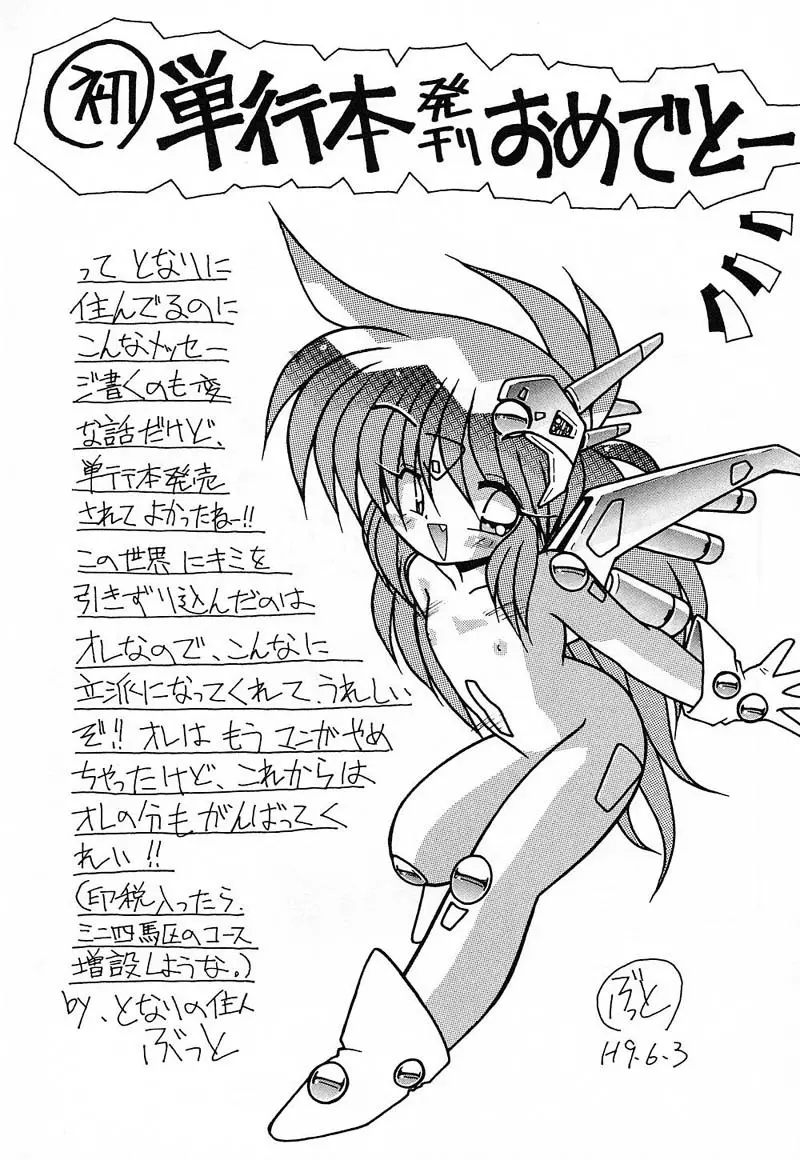 初単行本発刊おめでとー
って となりに
住んでるのに
こんなメッセー
ジ書くのも変
な話だけど、
単行本発売
されて よかったねー!!
この世界にキミを
引きずり込んだのは
オレなので、こんなに
立派になってくれて、うれしい
ぞ!! オレは もう マンガやめ
ちゃったけど、これからは
オレの分も がんばってく
れい!!
(印税入ったら、
ミニ四馬区のコース
増設しような。)
by、となりの住人
ぶっと
ぶっと
H9.6.3